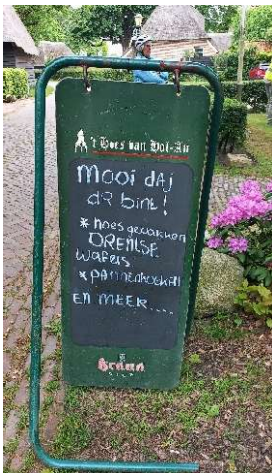 't Hoes van Hol-An
Mooi dAj
dR bint!
* hoes gebakken
DRENTSE
wafels
* pAnnenkoeken
EN MEER....
Brand